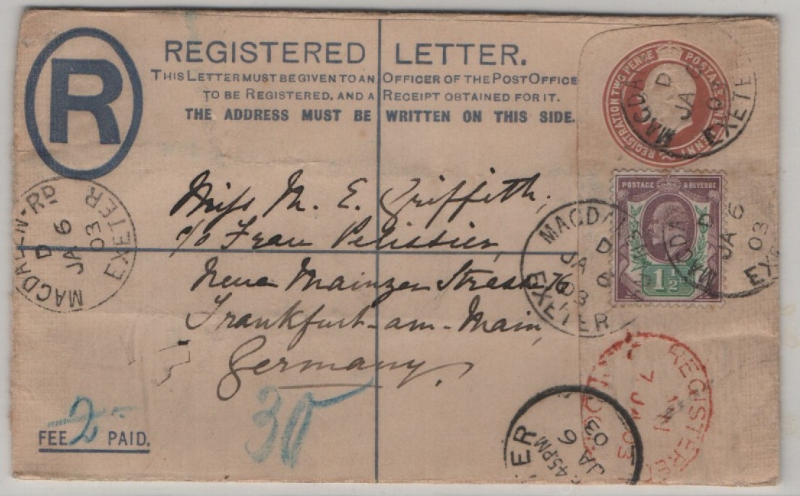 R
REGISTERED LETTER.
THIS LETTER MUST BE GIVEN TO AN OFFICER OF THE POST OFFICE
TO BE REGISTERED, AND A RECEIPT OBTAINED FOR IT.
THE ADDRESS MUST BE WRITTEN ON THIS SIDE.
REGISTRATION TWO PENCE POSTAGE ONE PENNY
MAGDA
D
JA 6
03
EXETE
Miss M. E. Griffith,
c/o Frau Pelissier,
Neue Mainzer Strasse 76
Frankfurt-am-Main,
Germany.
POSTAGE & REVENUE
1½
MAGDALEN-RD
D
JA 6
03
EXETER
MAGDA
D
JA 6
03
EXETER
MAGDA
D
JA 6
03
EXETE
FEE 2 PAID.
30
ER
45PM
JA 6
03
REGISTERED
7 JA
03